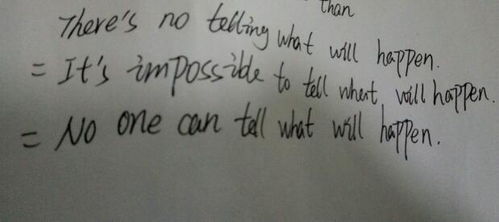 than
There's no telling what will happen.
= It's impossible to tell what will happen.
= No one can tell what will happen.